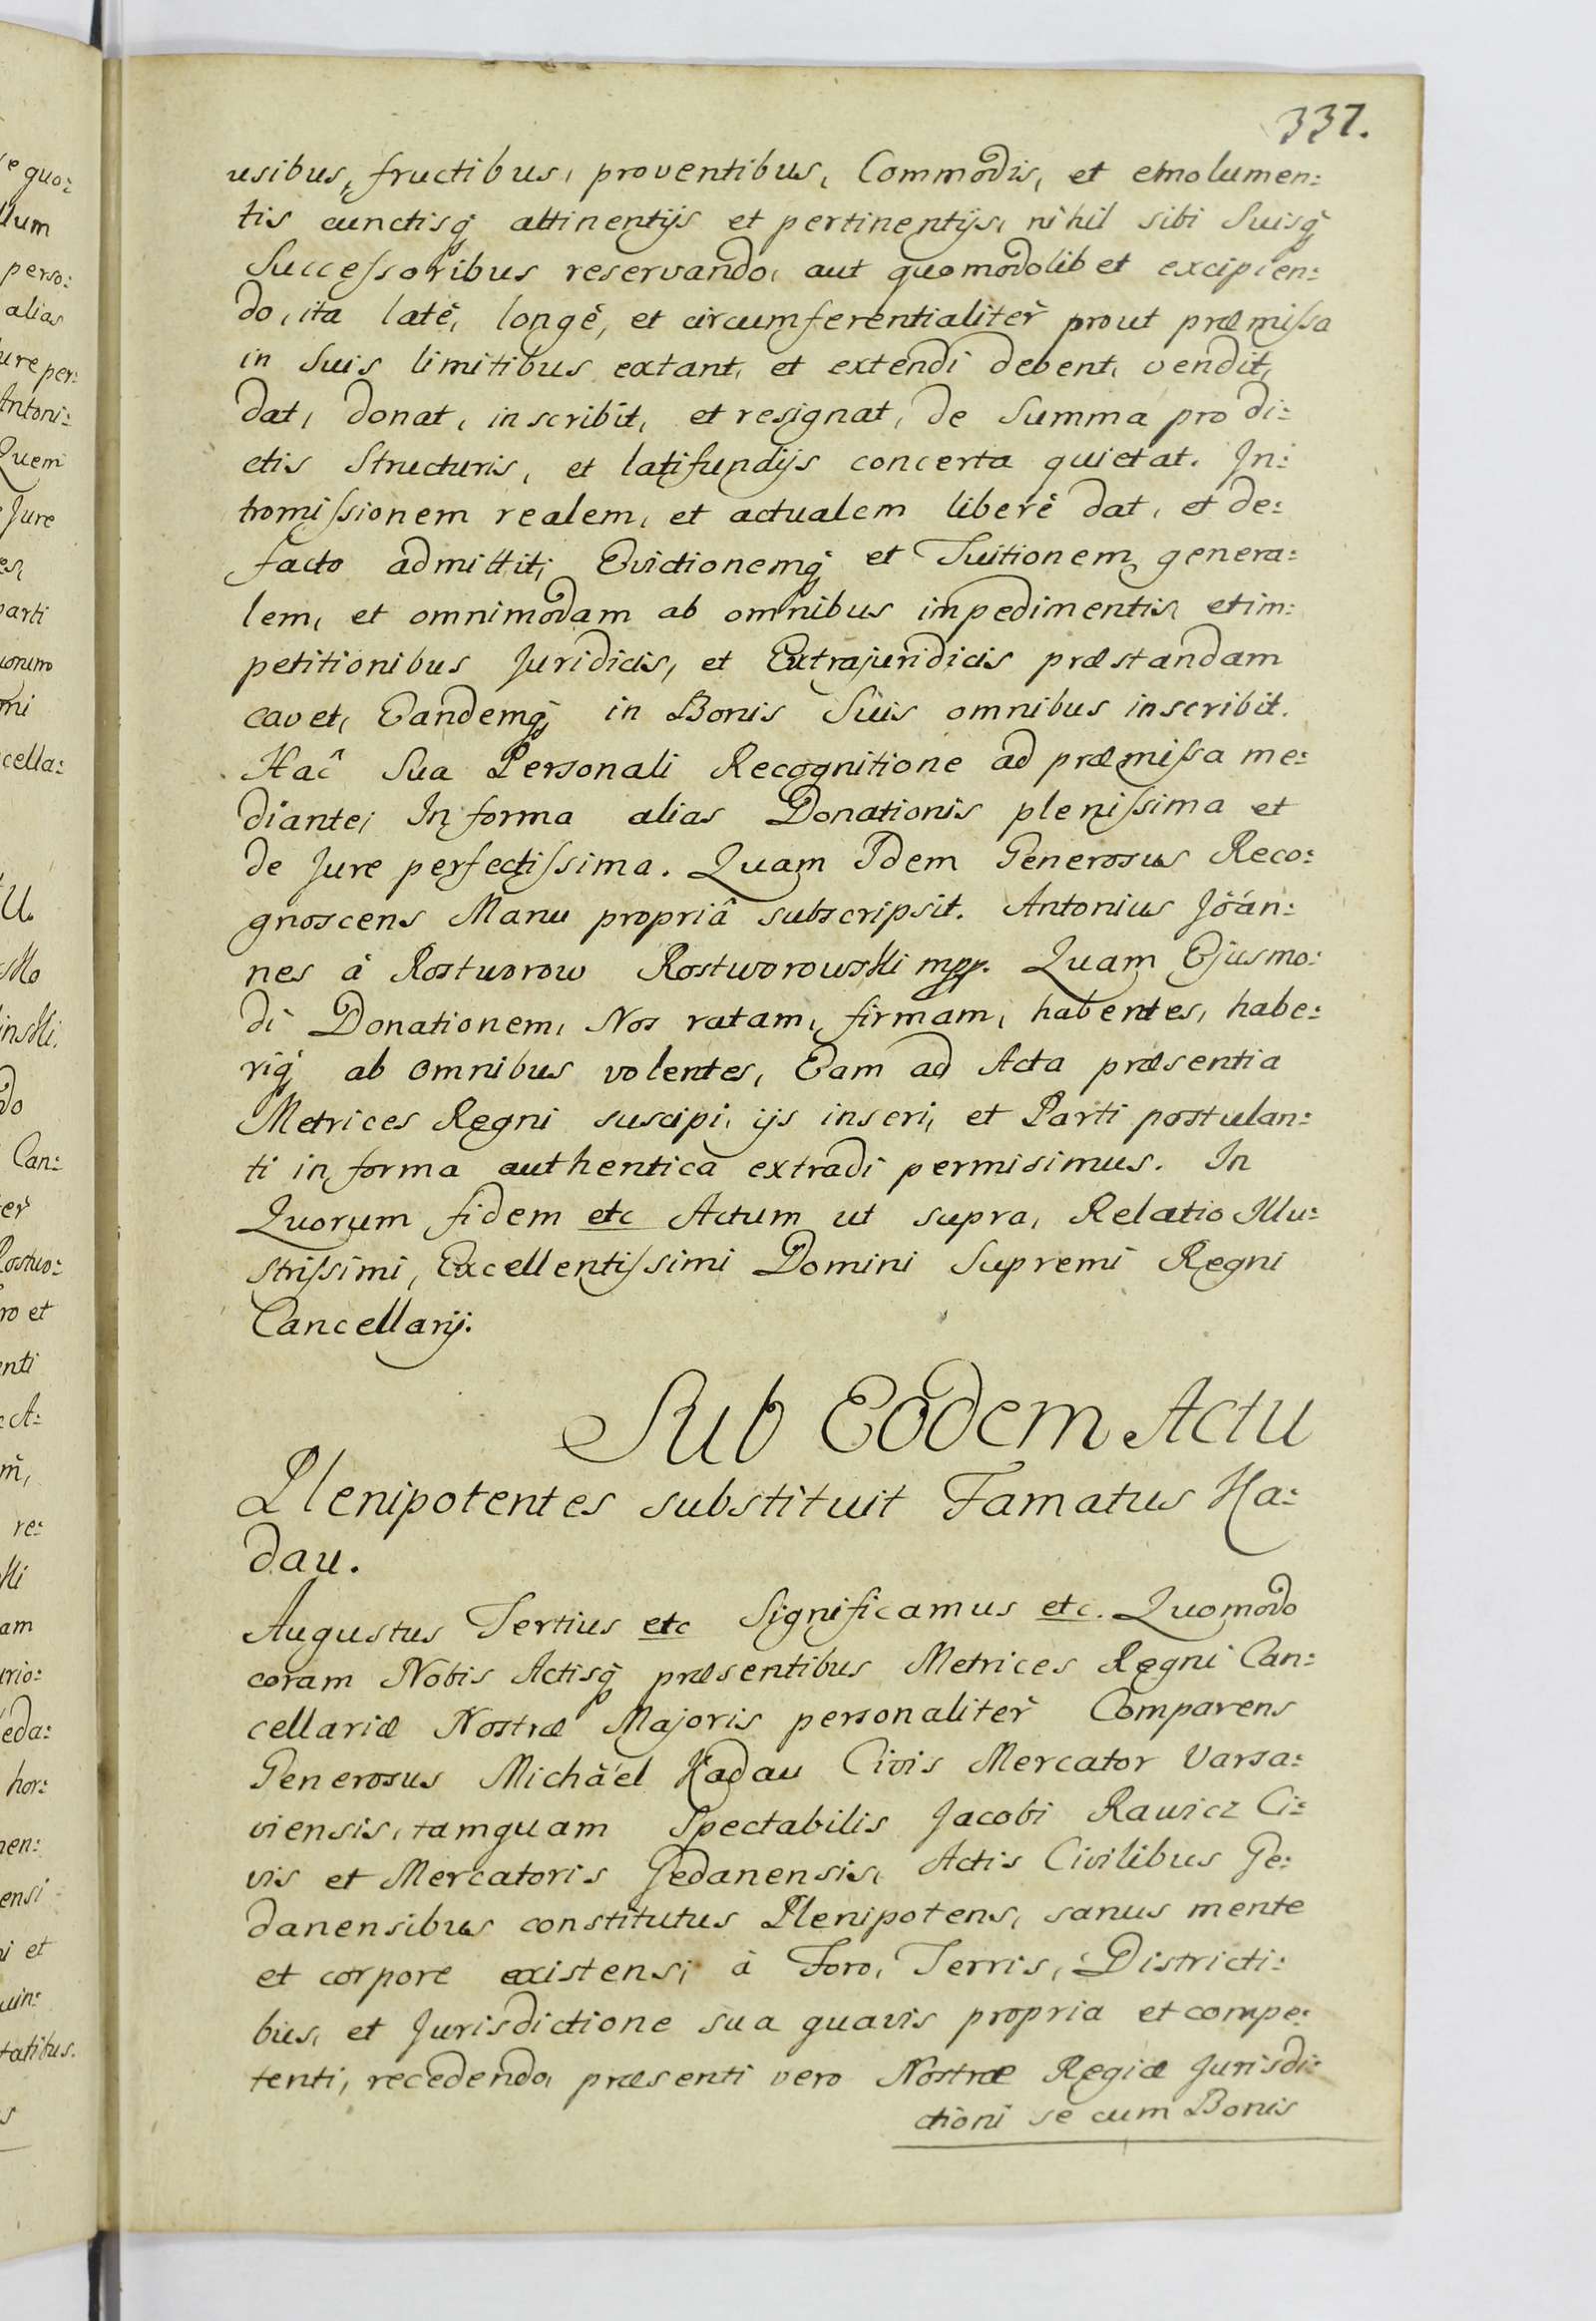 337.
usibus, fructibus, proventibus, Commodis, et emolumen:
tis cunctisq́ attinentijs et pertinentijs, nihil sibi Suisq́
Successoribus reservando, aut quomodolibet excipien:
do, ita latè, longè, et circumferentialitèr prout præmissa
in Suis limitibus extant, et extendi debent, vendit,
dat, donat, inscribit, et resignat, de Summa pro di:
ctis Structuris, et latifundijs concerta quietat. In:
tromissionem realem, et actualem liberè dat, et de:
facto admittit, Evictionemq́ et Tuitionem genera:
lem, et omnimodam ab omnibus impedimentis, et im:
petitionibus Juridicis, et Extrajuridicis præstandam
cavet, Eandemq́ in Bonis Suis omnibus inscribit.
Hac̑ Sua Personali Recognitione ad præmissa me:
diante, In forma alias Donationis plenissima et
de Jure perfectissima. Quam Idem Generosus Reco:
gnoscens Manu propriâ subscripsit. Antonius Jöán:
nes à Rostworow Rostworowski mpp. Quam Ejusmo:
di Donationem, Nos ratam, firmam, habentes, habe:
riq́ ab omnibus volentes, Eam ad Acta præsentia
Metrices Regni suscipi, ijs inscri, et Parti postulan:
ti in forma authentica extradi permisimus. In
Quorum fidem etc Actum ut supra, Relatio Illu:
strissimi, Excellentissimi Domini Supremi Regni
Cancellarij.
Sub Eodem Actu
Plenipotentes substituit Famatus Ha:
dau.
Augustus Tertius etc Significamus etc. Quomodo
coram Nobis Actisq́ præsentibus Metrices Regni Can:
cellariæ Nostræ Majoris personalitèr Comparens
Generosus Michäel Hadau Civis Mercator Varsa:
viensis, tamquam Spectabilis Jacobi Rawicz Ci:
vis et Mercatoris Gedanensis, Actis Civilibus Ge:
danensibus constitutus Plenipotens, sanus mente
et corpore existens, à Foro, Terris, Districti:
bus, et Jurisdictione sua quavis propria et compe:
tenti, recedendo, præsenti vero Nostræ Regiæ Jurisdi:
ctioni se cum Bonis